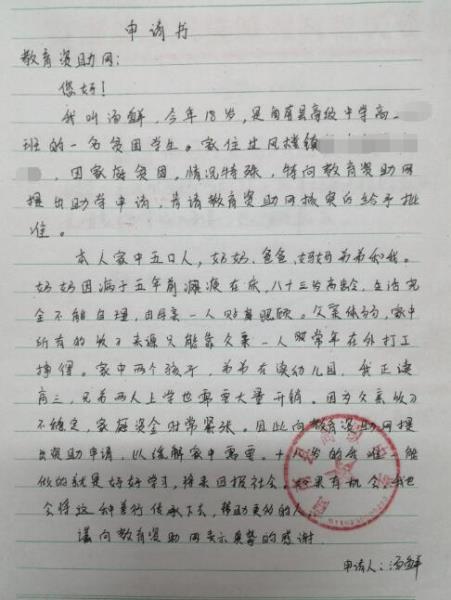 申请书
教育资助网：
您好！
我叫汤鲜，今年18岁，是 县高级中学高一
班的一名贫困学生。家住过风楼镇
，因家庭贫困，情况特殊，特向教育资助网
提出助学申请，肯请教育资助网核实后给予批
准。
本人家中五口人，奶奶、爸爸、妈妈弟弟和我。
奶奶因病于五年前瘫痪在床，八十三岁高龄，生活完
全不能自理，由母亲一人 照顾。父亲 ，家中
所有的收入来源只能靠父亲一人 常年在外打工
挣得。家中两个孩子，弟弟在读幼儿园，我正读
高三，兄弟两人上学也需要大量开销。因为父亲收入
不稳定，家庭资金时常紧张。因此向教育资助网提
出资助申请，以缓解家中 。十八岁的我唯一能
做的就是好好学习，将来回报社会。如果有机会我也
会将这种美德传承下去，帮助更多的人。
谨向教育资助网表示真挚的感谢
申请人：汤鲜